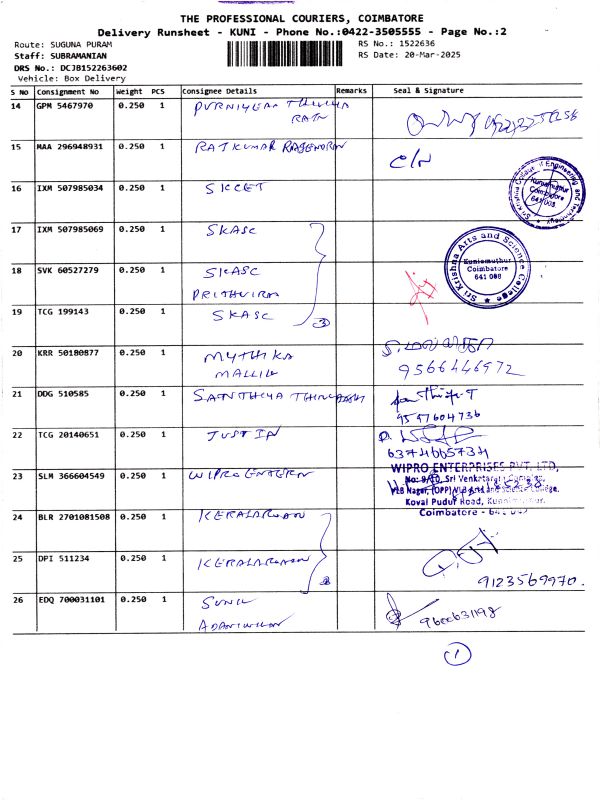 THE PROFESSIONAL COURIERS, COIMBATORE
Delivery Runsheet - KUNI - Phone No.:0422-3505555 - Page No.:2
Route: SUGUNA PURAM RS No.: 1522636
Staff: SUBRAMANIAN RS Date: 20-Mar-2025
DRS No.: DCJB152263602
Vehicle: Box Delivery
S No Consignment No Weight PCS Consignee Details Remarks Seal & Signature
14 GPM 5467970 0.250 1
15 MAA 296948931 0.250 1 RAJKUMAR RAJENDRAN C/N
16 IXM 507985034 0.250 1 SKCET
Sri Krishna College of Engineering and Technology
Kuniamuthur
Coimbatore
641 008
17 IXM 507985069 0.250 1 SKASC
Sri Krishna Arts and Science College
Kuniamuthur
Coimbatore
641 008
18 SVK 60527279 0.250 1 SKASC
PRITHVIRAJ
19 TCG 199143 0.250 1 SKASC
3
20 KRR 50180877 0.250 1 MYTHIKA
MALLIK
9566446972
21 DDG 510585 0.250 1 SANTHIYA
9597604736
22 TCG 20140651 0.250 1 JUSTIN
6374665734
23 SLM 366604549 0.250 1 WIPRO
WIPRO ENTERPRISES PVT. LTD,
No: 9/10, Sri Venkatarai
VLB Nagar, (OPP) VLB Arts and Science College,
Kovai Pudur Road, Kuniamuthur,
Coimbatore - 641 042
24 BLR 2701081508 0.250 1
25 DPI 511234 0.250 1
2
9123569970.
26 EDQ 700031101 0.250 1 SUNIL
9600631198
1